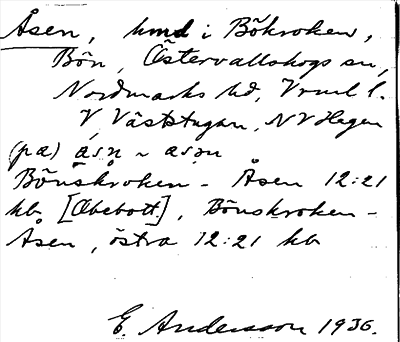 Åsen, hmd i Bökroken,
Bön, Östervallskogs sn,
Nordmarks hd, Vrml l.
V Väststugan, NV Hagen
(på) åsn̥ ~ åsən
Bönskroken - Åsen 12:21
hb [Obebott], Bönskroken -
Åsen, östra 12:21 hb
E. Andersson 1936.